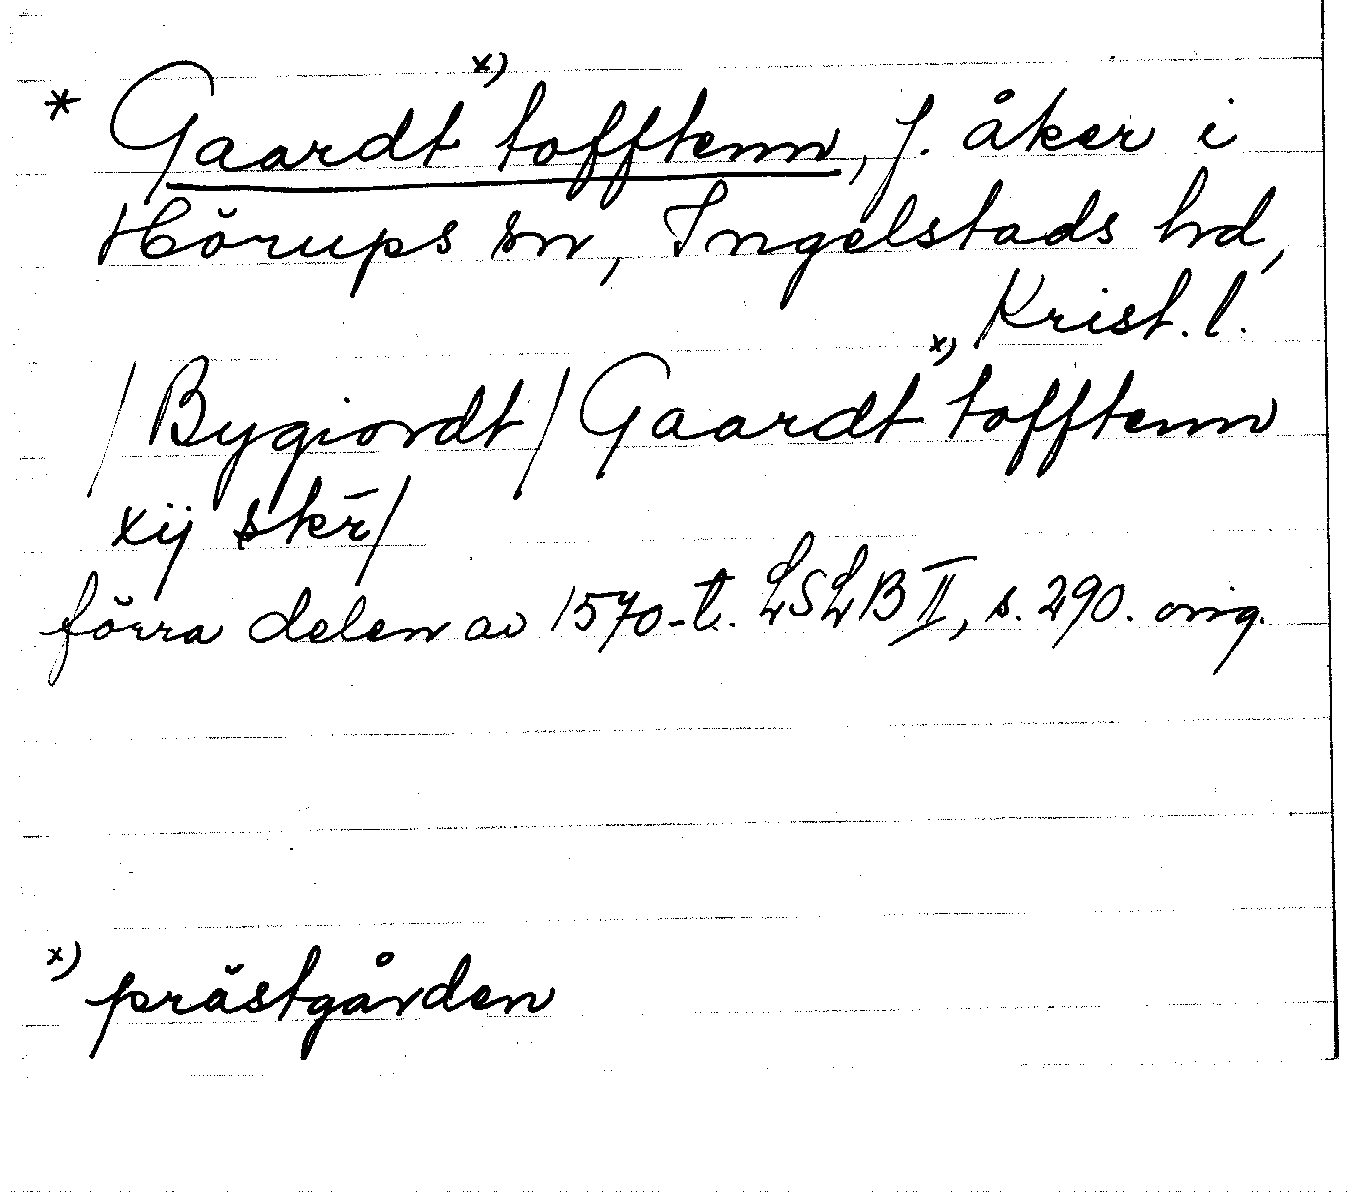 * Gaardt x) tofftenn, f. åker i
Hörups sn, Ingelstads hd,
Krist. l.
/Bygiordt/ Gaardt x) tofftenn
xij skr̄/
förra delen av 1570-t. LSLB II, s. 290. orig.
x) prästgården